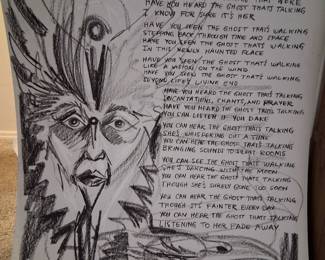 HAVE YOU HEARD THE GHOST THAT'S TALKING
I KNOW FOR SURE IT'S HER
HAVE YOU SEEN THE GHOST THAT'S WALKING
STEPPING BACK THROUGH TIME AND SPACE
HAVE YOU SEEN THE GHOST THAT'S WALKING
IN THIS NEWLY HAUNTED PLACE
HAVE YOU SEEN THE GHOST THAT'S WALKING
LIKE A VISION ON THE WIND
HAVE YOU SEEN THE GHOST THAT'S WALKING
BEYOND LIFE'S LIVING END
HAVE YOU HEARD THE GHOST THAT'S TALKING
INCANTATIONS, CHANTS, AND PRAYER
HAVE YOU HEARD THE GHOST THAT'S TALKING
YOU CAN LISTEN IF YOU DARE
YOU CAN HEAR THE GHOST THAT'S TALKING
SHE'S WHISPERING OUT A TUNE
YOU CAN HEAR THE GHOST THAT'S TALKING
BRINGING SOUNDS TO SILENT ROOMS
YOU CAN SEE THE GHOST THAT'S WALKING
SHE'S DANCING WITH THE MOON
YOU CAN HEAR THE GHOST THAT'S TALKING
THOUGH SHE'S SURELY GONE TOO SOON
YOU CAN HEAR THE GHOST THAT'S TALKING
THOUGH IT'S FAINTER EVERY DAY
YOU CAN HEAR THE GHOST THAT'S TALKING
LISTENING TO HER FADE AWAY